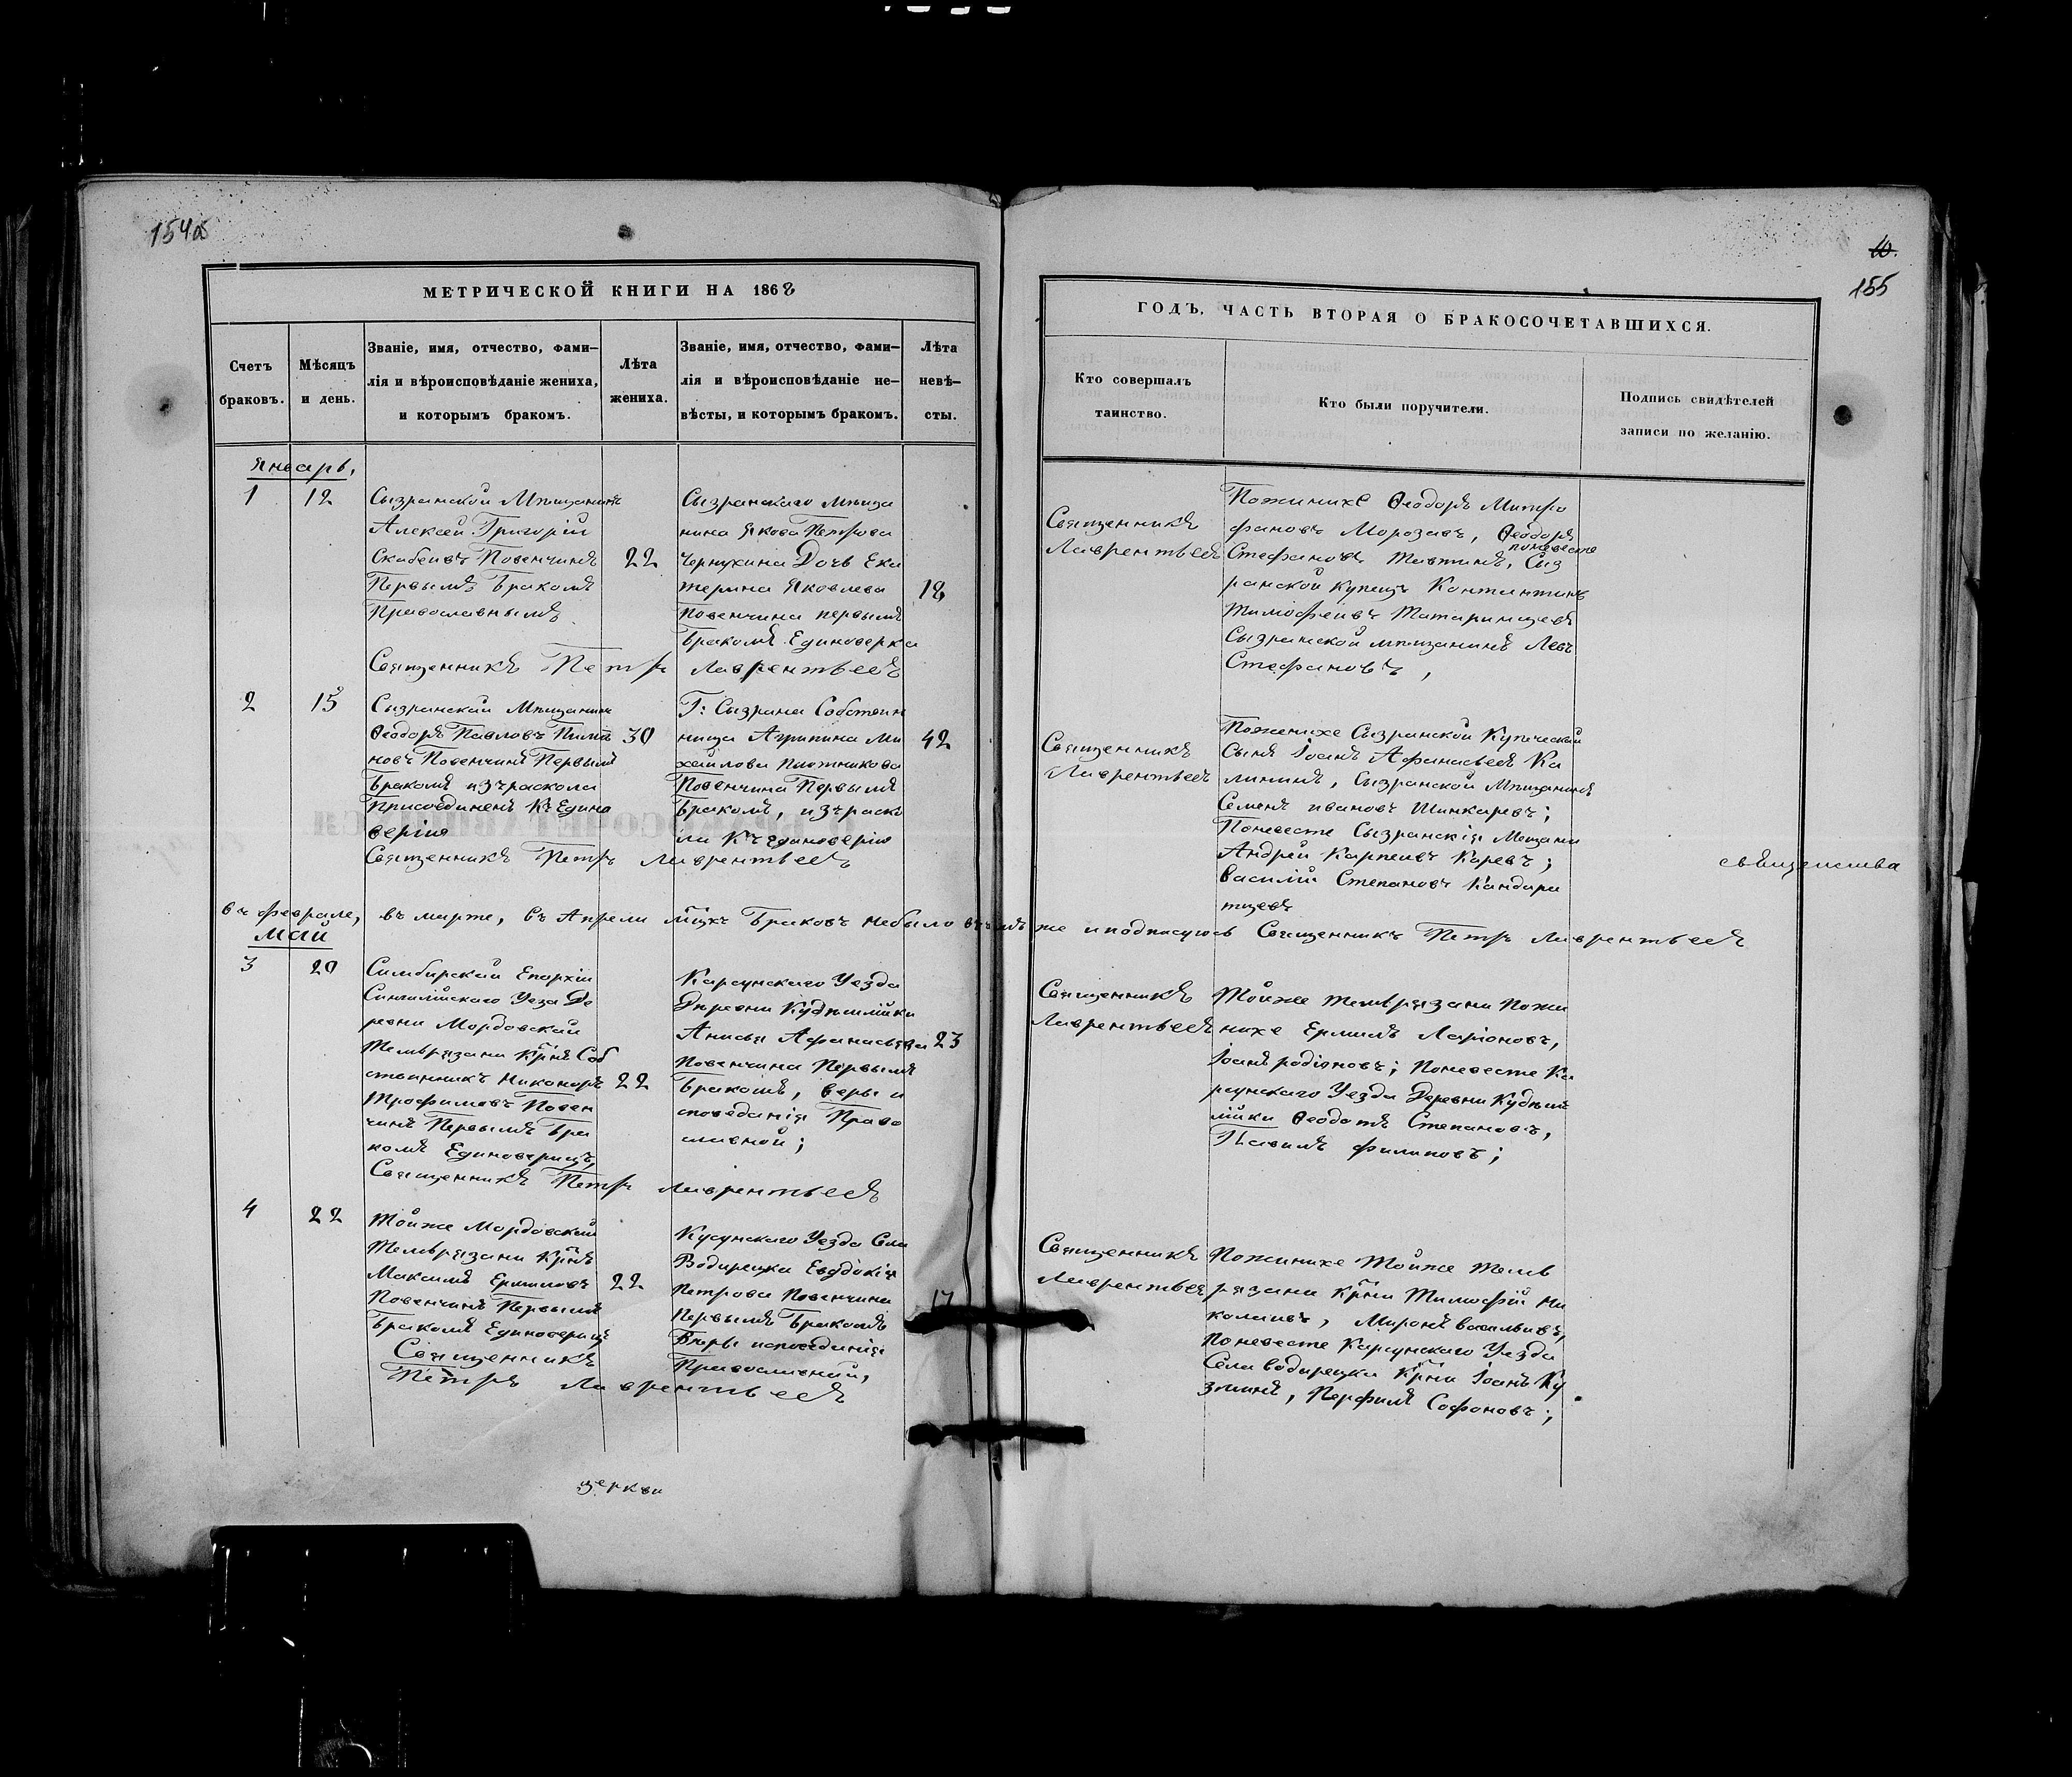 154об
МЕТРИЧЕСКОЙ КНИГИ НА 1868
Счетъ
браковъ.
Мѣсяцъ
и день.
Званіе, имя, отчество, фами-
лія и вѣроисповѣданіе жениха,
и которымъ бракомъ.
Лѣта
жениха.
Званіе, имя, отчество, фами-
лія и вѣроисповѣданіе не-
вѣсты, и которымъ бракомъ.
Лѣта
невѣ-
сты.
Январь,
1
12
Сызранской Мѣщанинъ
Алексей Григорій
Скабеивъ Повенчинъ
Первымъ Бракомъ
Православнымъ
22
Сызранскаго мѣща
нина Якова Петрова
Чернухина Дочь Ека
терина Яковлева
Повенчина первымъ
Бракомъ Единоверка
18
Священникъ Петръ Лаврентьевъ
2
15
Сызранский Мѣщанин
Ѳеодоръ Павловъ Пими
новъ Повенчинъ Первый
Бракомъ изъ раскола
Присоединенъ Къ Едино
верію
30
Г: Сызрана Собствен
ница Агрипина Ми
хайлова Плотникова
Повенчина Первымъ
Бракомъ, изъ раско
ла Къ единоверію
42
Священникъ Петръ Лаврентьевъ
въ феврале, въ марте, въ Апрели мцхъ Браковъ небыло въ чемъ же и подписуюсь Священникъ Петръ Лаврентьевъ
май
3
20
Симбирский Епархіи
Сингилийскаго Уеза Де
ревни Мордовский
Темврязани Крнъ Соб
ственникъ Никаноръ
Трофимовъ Повен
чинъ Первымъ Бра
комъ Единоверицъ,
22
Карсунскаго Уезда
Дѣревни Кудѣшлійки
Анисья Афанасьява
Повенчина Первымъ
Бракомъ, веры и
споведанія Право
славной;
23
Священникъ Петръ Лаврентьевъ
4
22
Тойже Мордовский
Темврязани Крнъ
Максимъ Ермиловъ
Повенчинъ Первымъ
Бракомъ Единоверицъ
22
Кусунскаго Уезда Села
Водирецка Евдокія
Петрова Повенчина
Первымъ Бракомъ
Вѣры исповеданія
Православний,
17
Священникъ
Петръ Лаврентьевъ
церкви
10.
155
ГОДЪ, ЧАСТЬ ВТОРАЯ О БРАКОСОЧЕТАВШИХСЯ.
Кто совершалъ
таинство.
Кто были поручители.
Подпись свидѣтелей
записи по желанію.
Священникъ
Лаврентьевъ
Пожинихе Ѳеодоръ Митро
фановъ Морозавъ, Ѳеодоръ
поневесте
Стефановъ Тявтинъ, Сыз
ранской купецъ Контантинъ
Тимофеивъ Татаринцевъ
Сызранской мѣщанинъ Левъ
Стефановъ,
Священникъ
Лаврентьевъ
Пожинихе Сызранской Купеческий
Сынъ Іоанъ Афанасьевъ Ка
лининъ, Сызранской Мѣщанинъ
Семенъ ивановъ Шинкаревъ;
Поневесте Сызранскія Мещани
Андрей Карпеивъ Каревъ;
Василий Степановъ Кандара
тцевъ
священства
Священникъ
Лаврентьевъ
Тойже темврязани Пожи
нихе Ермилъ Ларіоновъ,
Іоанъ родіоновъ; Поневесте Ка
рсунскаго Уезда Деревни Кудѣш
лійки Ѳеодотъ Степановъ,
Павилъ филиповъ;
Священникъ
Лаврентьев
Пожинихе Тойже темв
рязани Крни Тимофій Ни
колаивъ, Миронъ васильивъ,
Поневесте Карсунскаго Уезда
Села водирецки Крни Іоанъ Ку
зминъ, Перфилъ Софоновъ;